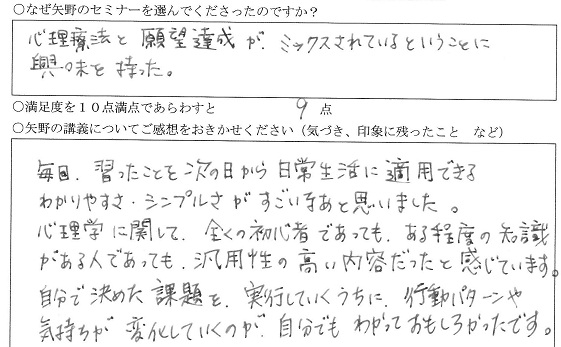 ○なぜ矢野のセミナーを選んでくださったのですか？
心理療法と願望達成が、ミックスされているということに
興味を持った。
○満足度を１０点満点であらわすと　9　点
○矢野の講義についてご感想をおきかせください（気づき、印象に残ったこと　など）
毎回、習ったことを次の日から日常生活に適用できる
わかりやすさ・シンプルさがすごいなあと思いました。
心理学に関して、全くの初心者であっても、ある程度の知識
がある人であっても、汎用性の高い内容だったと感じています。
自分で決めた課題を、実行していくうちに、行動パターンや
気持ちが変化していくのが、自分でもわかっておもしろかったです。